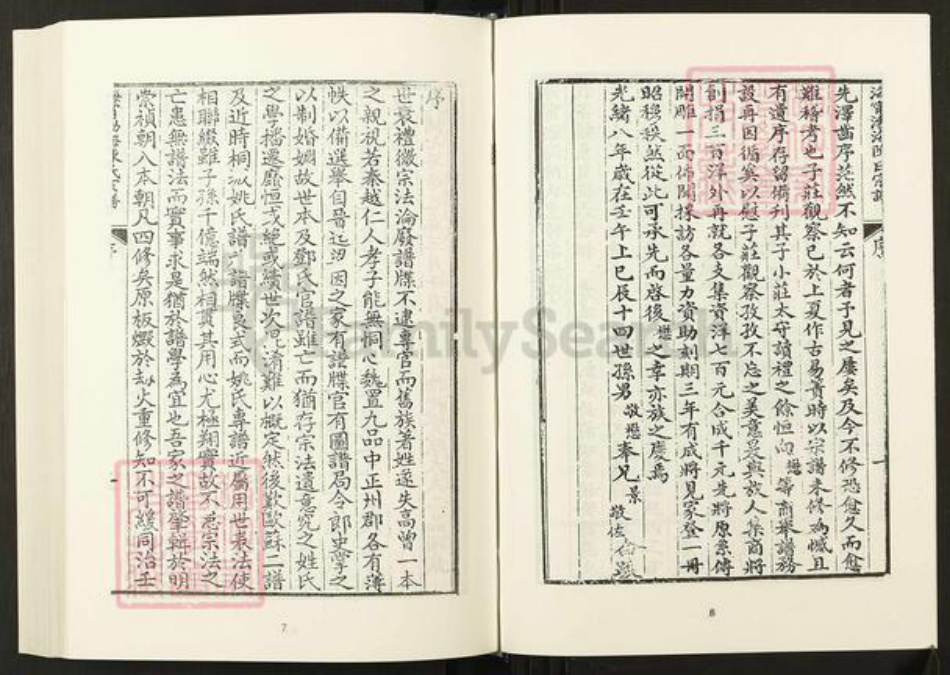 先澤齒序茫然不知云何者予見之屢矣及今不修恐愈久而愈
難稽考也子莊觀察已於上夏作古易簀時以宗譜未修為憾且
有遺序存留獨刊其子小莊太守讀禮之餘恒向懋等商舉譜務
設再因循奚以慰子莊觀察孜孜不忘之美意爰與族人集商將
創捐三百洋外再就各支集資洋七百元合成千元先將原系傳
開雕一面佈聞採訪各量力資助刻期三年有成將見家登一冊
昭穆秩然從此可承先而啓後懋之幸亦族之慶焉
光緒八年歲在壬午上巳辰十四世孫男敬懋奉兄景
敬佐
序
6
序
世衰禮微宗法淪廢譜牒不逮專官而舊族著姓遂失高曾一本
之親視若秦越仁人孝子能無恫心魏置九品中正州郡各有簿
帙以備選舉自晉迄 因之家有譜牒官有圖譜局令郎史掌之
以制婚姻故世本及鄧氏官譜雖亡而猶存宗法遺意究之姓氏
之學播遷靡恒或絕或續世次 淆難以概定然後歎歐蘇二譜
及近時桐城姚氏譜 譜牒良式而姚氏專譜近屬用世表法使
相聯綴雖子孫千億端然相貫其用心尤極翔實故不 宗法之
亡患無譜法而實事求是猶於譜學為宜也吾家之譜肇輯於明
崇禎朝入本朝凡四修矣原板燬於劫火重修知不可緩同治壬
序
7
FamilySearch